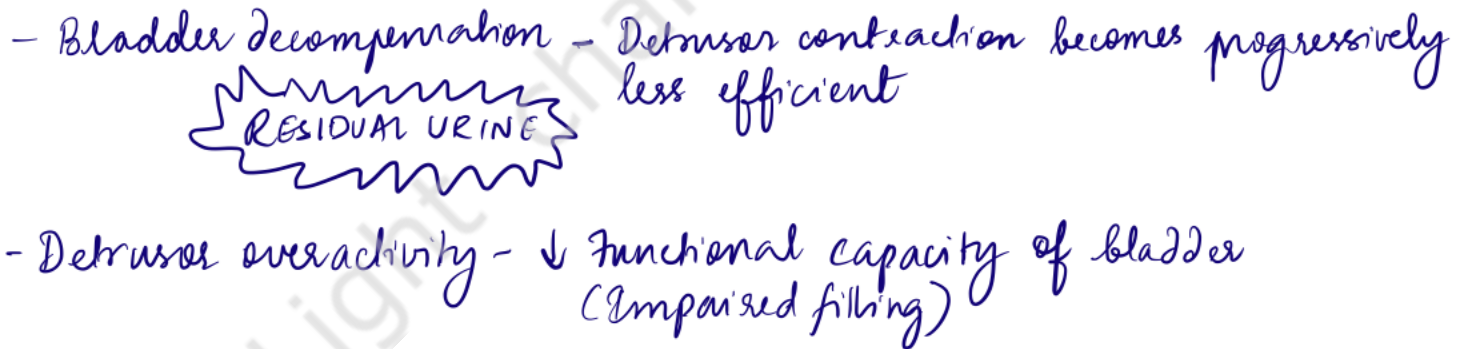 - Bladder decompensation - Detrusor contraction becomes progressively
less efficient
RESIDUAL URINE
- Detrusor overactivity - ↓ Functional capacity of bladder
(Impaired filling)